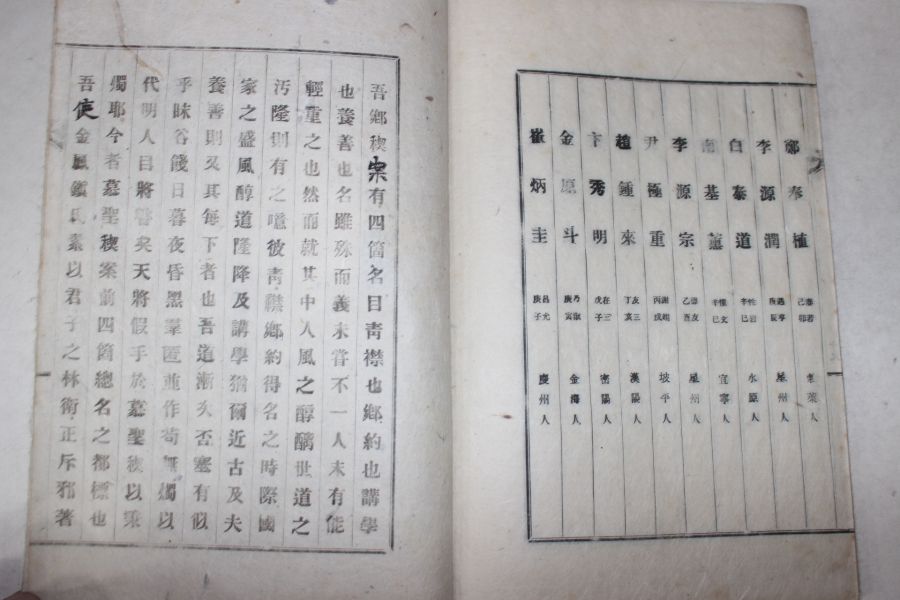 鄭奉植 己卯 東萊人
李源潤 庚辰 星州人
白泰道 辛巳 水原人
南基薰 辛巳 宜寧人
李源宗 乙酉 星州人
尹極重 丙戌 坡平人
趙鍾來 友三 丁亥 漢陽人
卞秀明 在三 戊子 密陽人
金原斗 乃淑 庚寅 金海人
崔炳圭 昌允 庚子 慶州人
吾鄉稧案有四箇名目靑襟也鄉約也講學
也養善也名雖殊而義未嘗不一人未有能
輕重之也然而就其中人風之醇醨世道之
汚隆則有之噫彼靑襟鄉約得名之時際國
家之盛風醇道隆降及講學猶爾近古及夫
養善則又其每下者也吾道漸久否塞有似
乎昧谷餞日暮夜昏黑羣匿並作苟無燭以
代明人目將瞽矣天將假手於慕聖稧以秉
燭耶今者慕聖稧案前四箇總名之都標也
吾使金鳳鎭氏素以君子之林衛正斥邪著